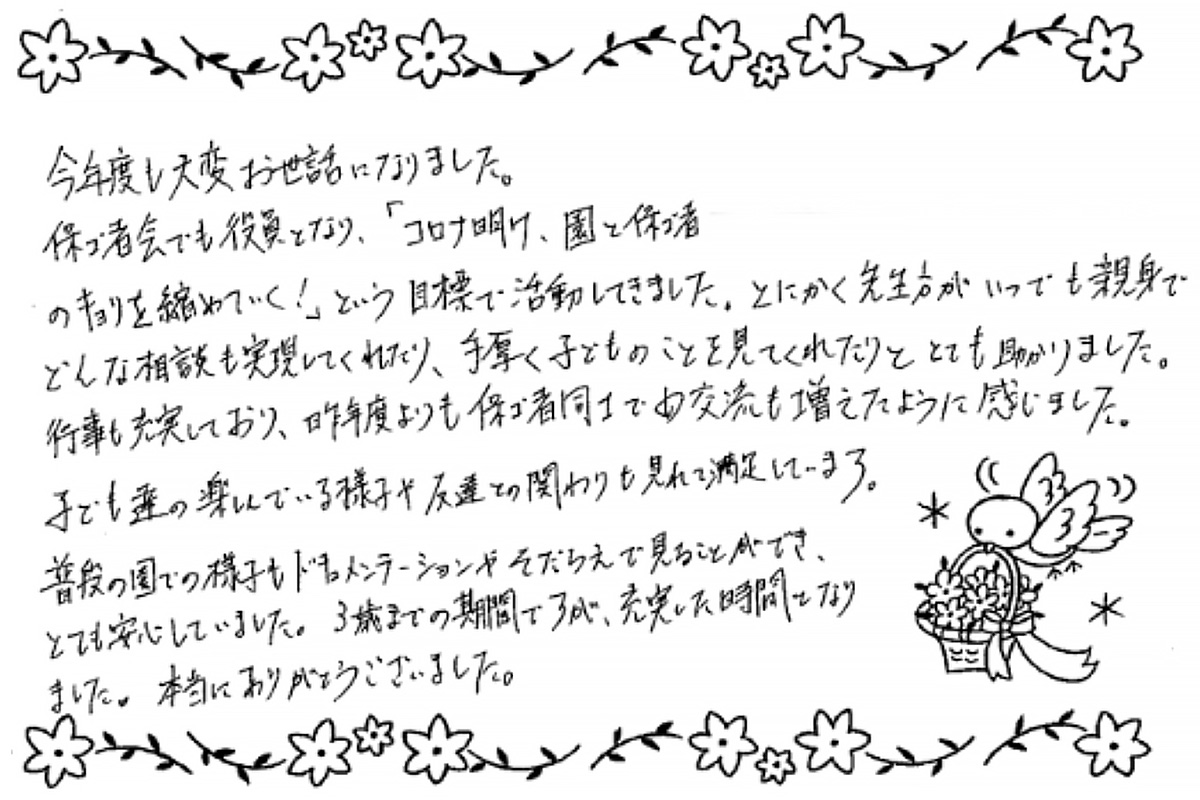 今年度も大変お世話になりました。
保ゴ者会でも役員となり、「コロナ明け、園と保ゴ者
のキョリを縮めていく!」という目標で活動してきました。とにかく先生方がいつでも親身で
どんな相談も実現してくれたり、手厚く子どものことを見てくれたりととても助かりました。
行事も充実しており、昨年度よりも保ゴ者同士での交流も増えたように感じました。
子ども達の楽しんでいる様子や友達との関わりも見れて満足しています。
普段の園での様子もドキュメンテーションやそだちえで見ることができ、
とても安心していました。3歳までの期間ですが、充実した時間となり
ました。本当にありがとうございました。